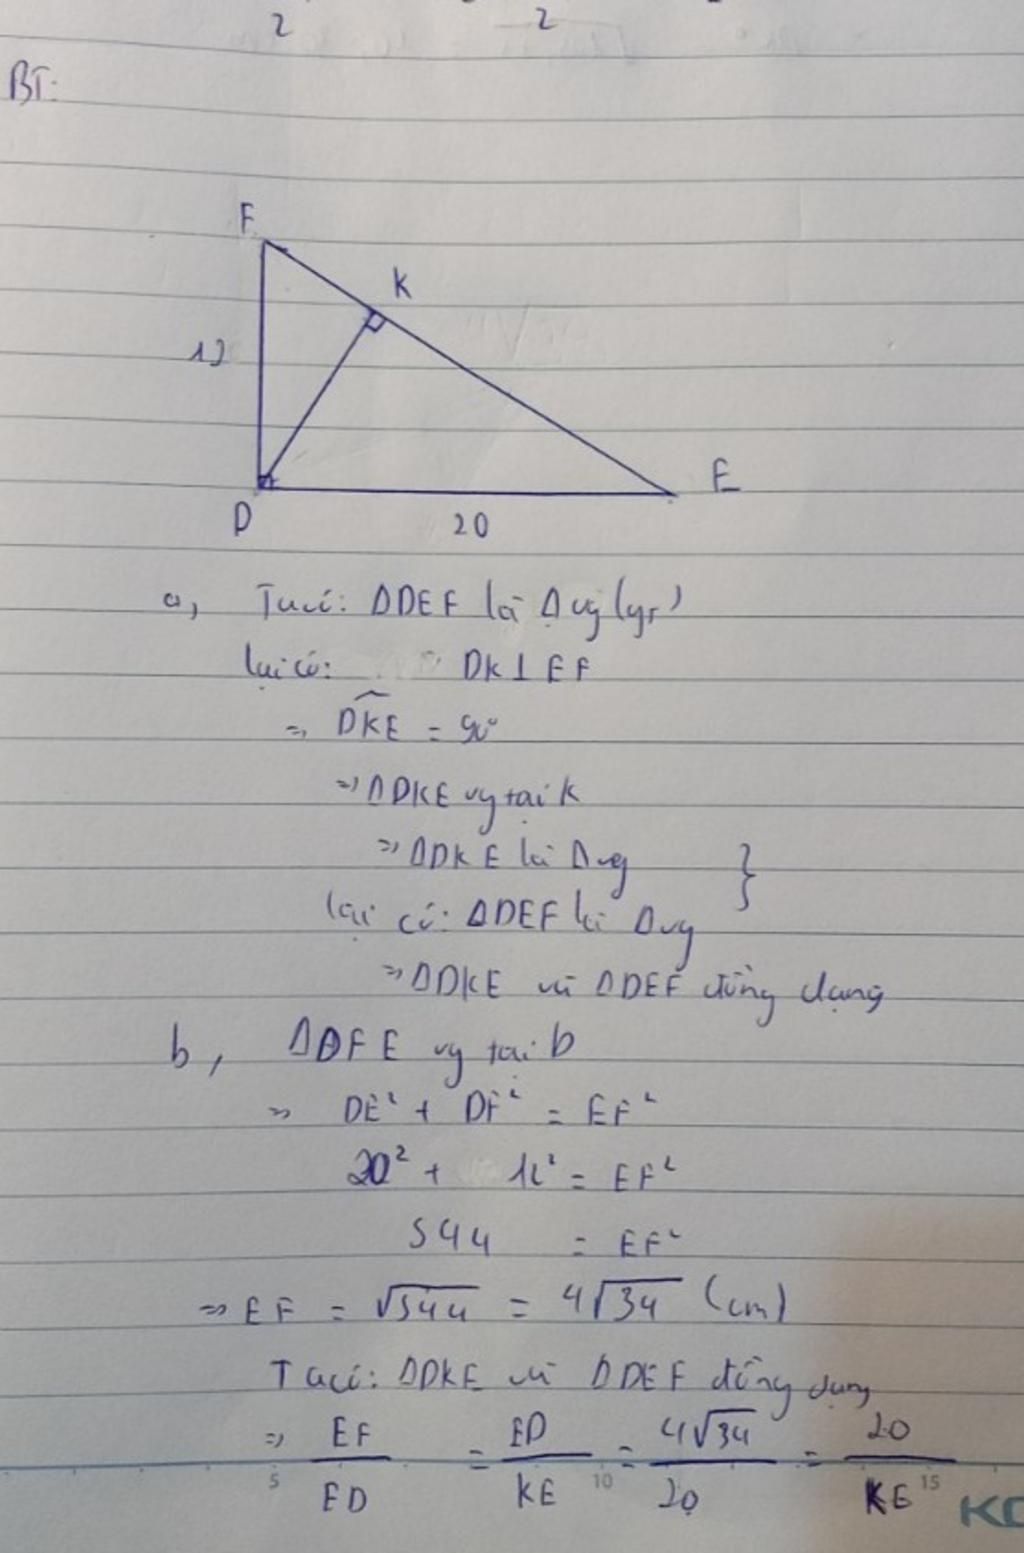 2 2
BT:
F
K
12
D
E
20
a, Tacó: ΔDEF là Δvg (gt)
lại có: DK⊥EF
=> DKE = 90°
=> ΔDKE vg tại K
=> ΔDKE là Δvg }
lại có: ΔDEF là Δvg
=> ΔDKE và ΔDEF đồng dạng
b, ΔDFE vg tại D
=> DE² + DF² = EF²
20² + 12² = EF²
544 = EF²
=> EF = √544 = 4√34 (cm)
Tacó: ΔDKE và ΔDEF đồng dạng
=> EF/ED = ED/KE = 4√34/20 = 20/KE
5 10 15